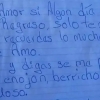 Amor si Algún día
Regreso, solo te
recuerdas lo mucho
Amo.
y digas se me
enojón, berrincho
doso